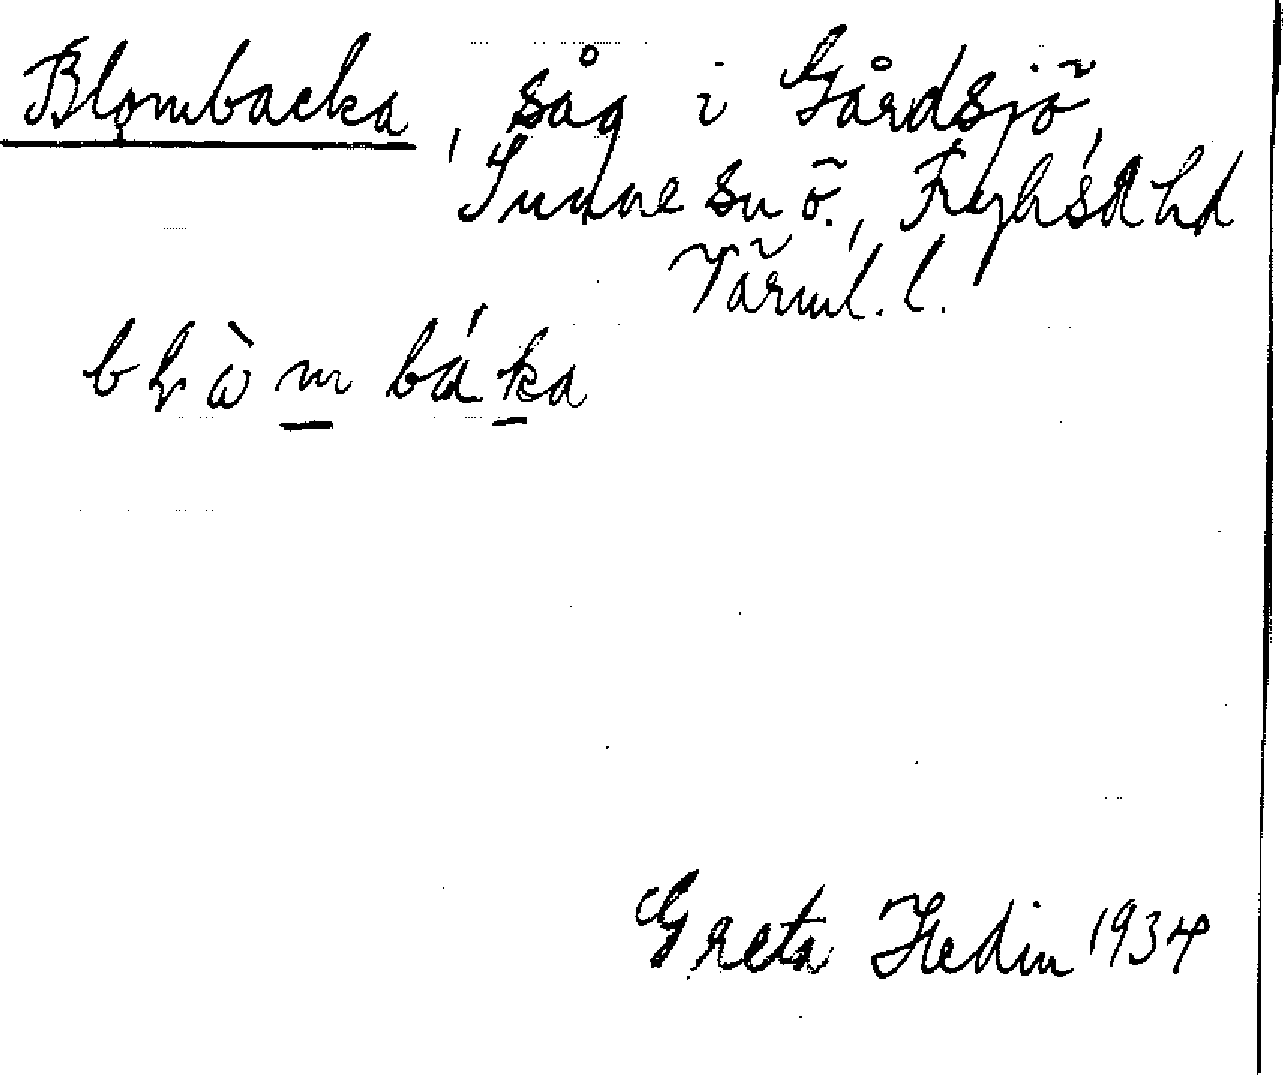 Blombacka, såg i Gårdsjö,
Sunne sn ö., Fryksd. hd
Värml. l.
bḷòm báka
Greta Hedin 1934